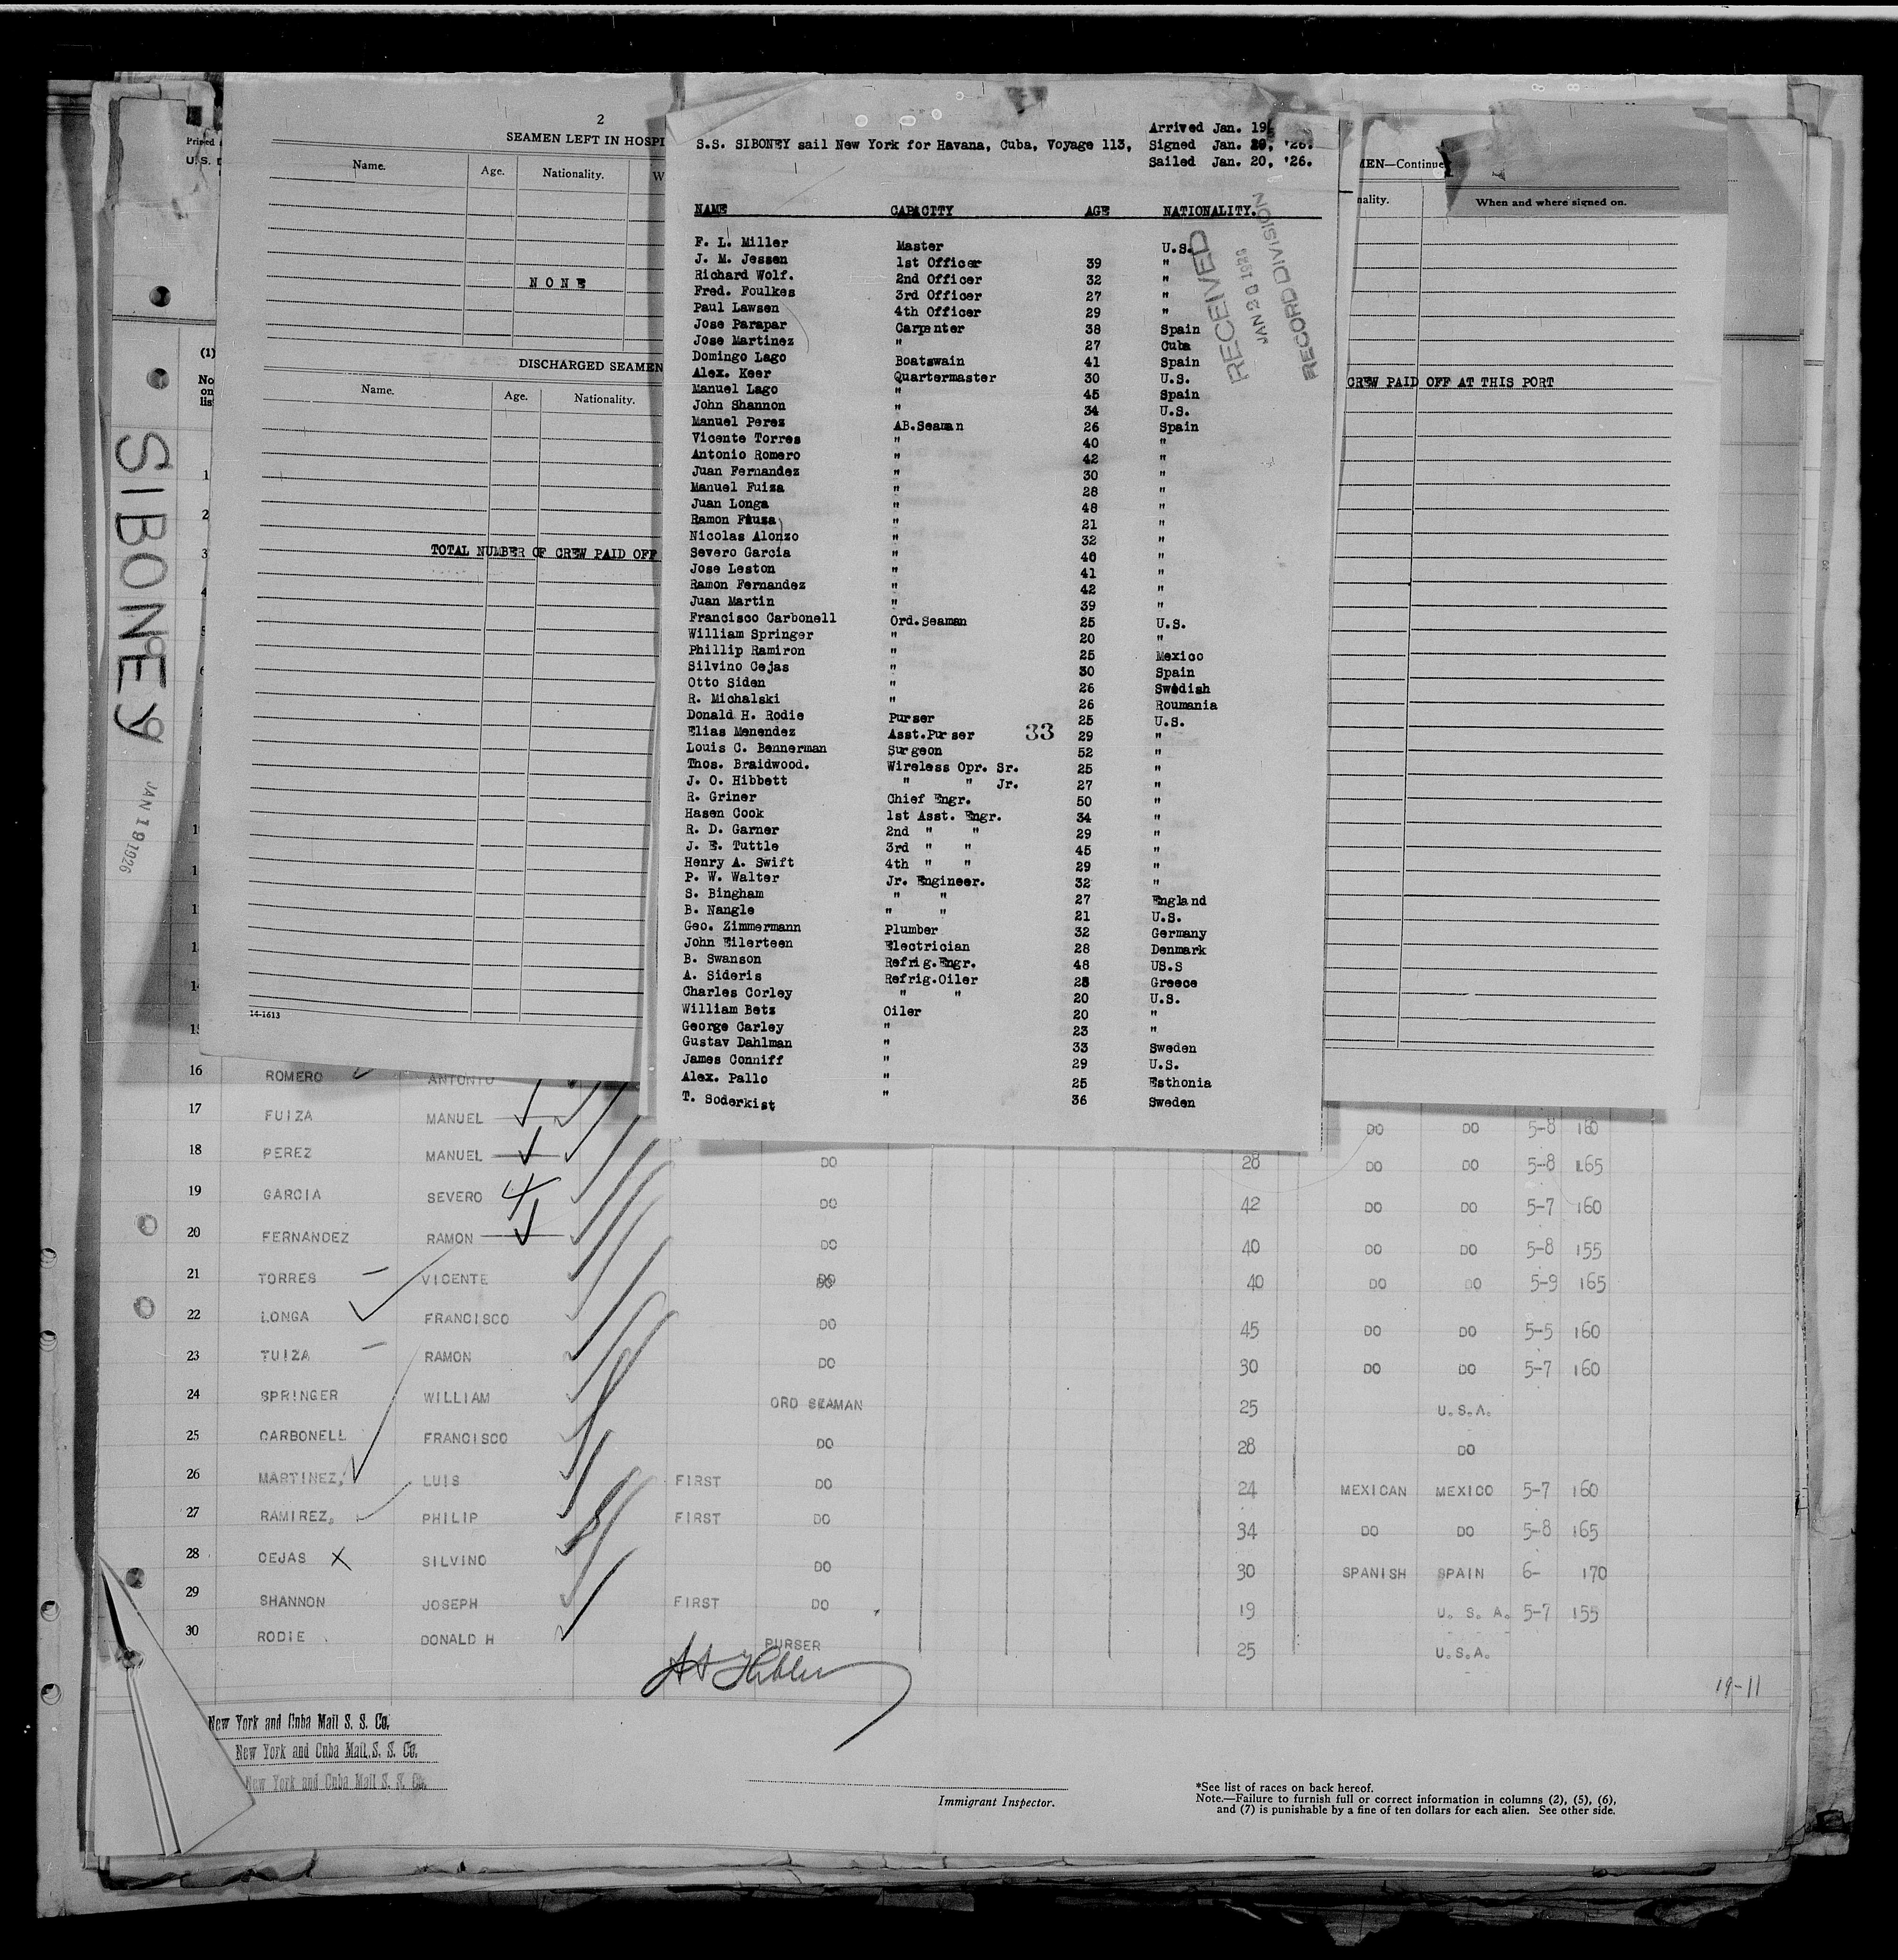 2
SEAMEN LEFT IN HOSPI
Name. Age. Nationality. W
NONE
DISCHARGED SEAMEN
Name. Age. Nationality.
TOTAL NUMBER OF CREW PAID OFF
14-1613
Printed
U.S.
(1)
No
on
lis
SIBONEY
JAN 19 1926
Arrived Jan. 19
S.S. SIBONEY sail New York for Havana, Cuba, Voyage 113, Signed Jan. 20, '26.
Sailed Jan. 20, '26.
NAME CAPACITY AGE NATIONALITY.
F. L. Miller Master U.S.
J. M. Jessen 1st Officer 39 "
Richard Wolf. 2nd Officer 32 "
Fred. Foulkes 3rd Officer 27 "
Paul Lawsen 4th Officer 29 "
Jose Parapar Carpenter 38 Spain
Jose Martinez " 27 Cuba
Domingo Lago Boatswain 41 Spain
Alex. Keer Quartermaster 30 U.S.
Manuel Lago " 45 Spain
John Shannon " 34 U.S.
Manuel Perez AB.Seaman 26 Spain
Vicente Torres " 40 "
Antonio Romero " 42 "
Juan Fernandez " 30 "
Manuel Fuiza " 28 "
Juan Longa " 48 "
Ramon Fiusa " 21 "
Nicolas Alonzo " 32 "
Severo Garcia " 40 "
Jose Leston " 41 "
Ramon Fernandez " 42 "
Juan Martin " 39 "
Francisco Carbonell Ord.Seaman 25 U.S.
William Springer " 20 "
Phillip Ramiron " 25 Mexico
Silvino Cejas " 30 Spain
Otto Siden " 26 Swedish
R. Michalski " 26 Roumania
Donald H. Rodie Purser 25 U.S.
Elias Menendez Asst.Purser 33 29 "
Louis C. Bennerman Surgeon 52 "
Thos. Braidwood. Wireless Opr. Sr. 25 "
J. O. Hibbett " " Jr. 27 "
R. Griner Chief Engr. 50 "
Hasen Cook 1st Asst. Engr. 34 "
R. D. Garner 2nd " " 29 "
J. E. Tuttle 3rd " " 45 "
Henry A. Swift 4th " " 29 "
P. W. Walter Jr. Engineer. 32 "
S. Bingham " " 27 England
B. Nangle " " 21 U.S.
Geo. Zimmermann Plumber 32 Germany
John Eilerteen Electrician 28 Denmark
B. Swanson Refrig.Engr. 48 US.S
A. Sideris Refrig.Oiler 28 Greece
Charles Corley " " 20 U.S.
William Betz Oiler 20 "
George Carley " 23 "
Gustav Dahlman " 33 Sweden
James Conniff " 29 U.S.
Alex. Pallo " 25 Esthonia
T. Soderkist " 36 Sweden
RECEIVED
JAN 20 1926
RECORD DIVISION
MEN—Continue
nality. When and where signed on.
CREW PAID OFF AT THIS PORT
16 ROMERO ANTONIO
17 FUIZA MANUEL DO DO 5-8 160
18 PEREZ MANUEL DO 28 DO DO 5-8 165
19 GARCIA SEVERO DO 42 DO DO 5-7 160
20 FERNANDEZ RAMON DO 40 DO DO 5-8 155
21 TORRES VICENTE DO 40 DO DO 5-9 165
22 LONGA FRANCISCO DO 45 DO DO 5-5 160
23 TUIZA RAMON DO 30 DO DO 5-7 160
24 SPRINGER WILLIAM ORD SEAMAN 25 U.S.A.
25 CARBONELL FRANCISCO DO 28 DO
26 MARTINEZ, LUIS FIRST DO 24 MEXICAN MEXICO 5-7 160
27 RAMIREZ, PHILIP FIRST DO 34 DO DO 5-8 165
28 CEJAS X SILVINO DO 30 SPANISH SPAIN 6- 170
29 SHANNON JOSEPH FIRST DO 19 U. S. A. 5-7 155
30 RODIE DONALD H PURSER 25 U.S.A.
19-11
New York and Cuba Mail S. S. Co.
New York and Cuba Mail S. S. Co.
New York and Cuba Mail S. S. Co.
Immigrant Inspector.
*See list of races on back hereof.
Note.—Failure to furnish full or correct information in columns (2), (5), (6),
and (7) is punishable by a fine of ten dollars for each alien. See other side.